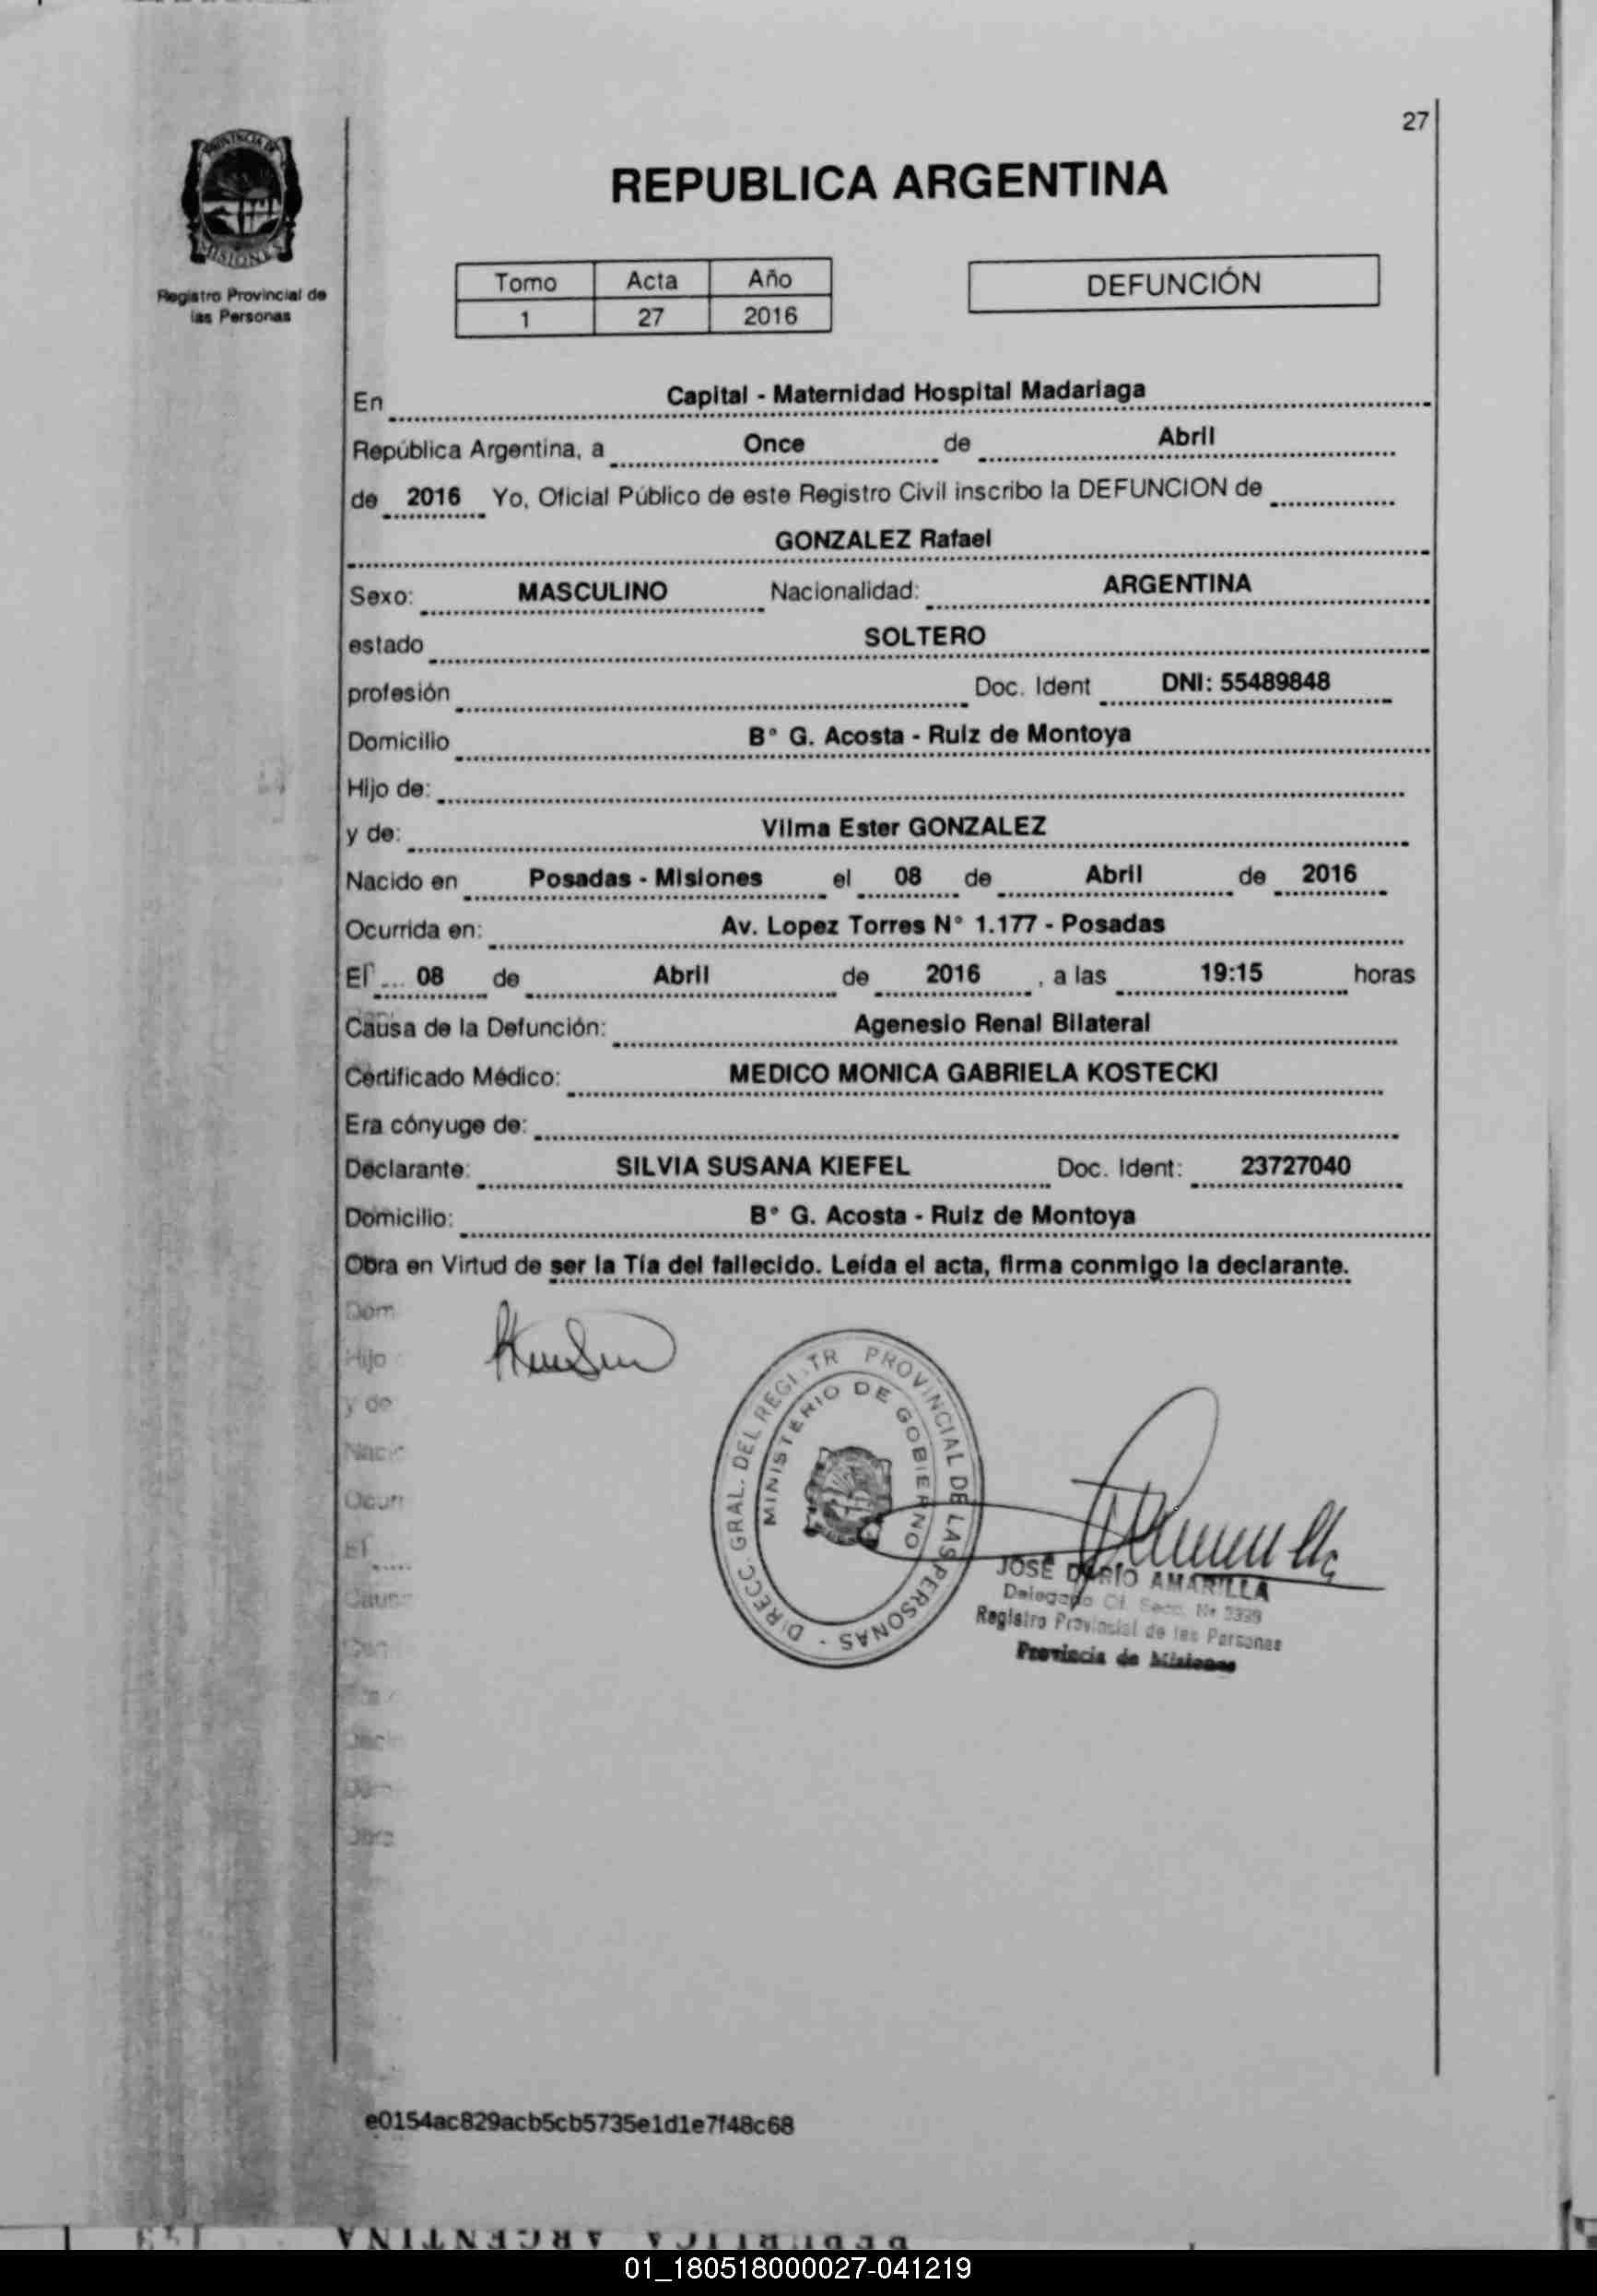 27
PROVINCIA DE
MISIONES
Registro Provincial de
las Personas
REPUBLICA ARGENTINA
Tomo Acta Año
1 27 2016
DEFUNCIÓN
En Capital - Maternidad Hospital Madariaga
República Argentina, a Once de Abril
de 2016 Yo, Oficial Público de este Registro Civil inscribo la DEFUNCION de
GONZALEZ Rafael
Sexo: MASCULINO Nacionalidad: ARGENTINA
estado SOLTERO
profesión Doc. Ident DNI: 55489848
Domicilio B° G. Acosta - Ruiz de Montoya
Hijo de:
y de: Vilma Ester GONZALEZ
Nacido en Posadas - Misiones el 08 de Abril de 2016
Ocurrida en: Av. Lopez Torres N° 1.177 - Posadas
El 08 de Abril de 2016 , a las 19:15 horas
Causa de la Defunción: Agenesio Renal Bilateral
Certificado Médico: MEDICO MONICA GABRIELA KOSTECKI
Era cónyuge de:
Declarante: SILVIA SUSANA KIEFEL Doc. Ident: 23727040
Domicilio: B° G. Acosta - Ruiz de Montoya
Obra en Virtud de ser la Tía del fallecido. Leída el acta, firma conmigo la declarante.
Dom
Hijo
y de
Ocurr
El
DIRECC. GRAL. DEL REGISTR PROVINCIAL DE LAS PERSONAS -
MINISTERIO DE GOBIERNO
JOSÉ DARÍO AMARILLA
Delegado
Registro Provincial de las Personas
Provincia de Misiones
e0154ac829acb5cb5735e1d1e7f48c68
REPUBLICA ARGENTINA
01_180518000027-041219